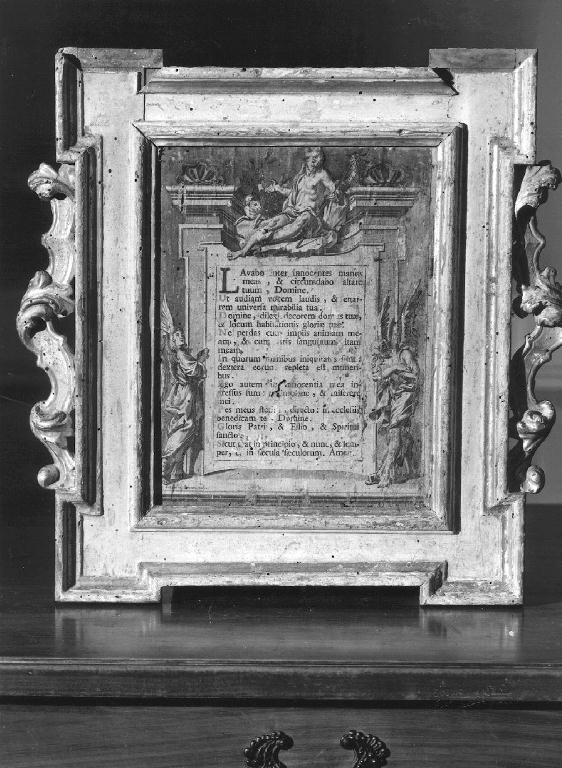 LAvabo inter innocentes manus
meas, & circumdabo altare
tuum, Domine.
Ut audiam vocem laudis, & enar-
rem universa mirabilia tua.
Domine, dilexi decorem domus tuæ,
& locum habitationis gloriæ tuæ.
Ne perdas cum impiis animam me-
am, & cum viris sanguinum vitam
meam.
In quorum manibus iniquitates sunt:
dextera eorum repleta est muneri-
bus.
Ego autem in innocentia mea in-
gressus sum: & miserere
mei.
Pes meus stetit in directo: in ecclesiis
benedicam te Domine.
Gloria Patri, & Filio, & Spiritui
sancto.
Sicut erat in principio, & nunc, & sem-
per, & in sæcula sæculorum. Amen.